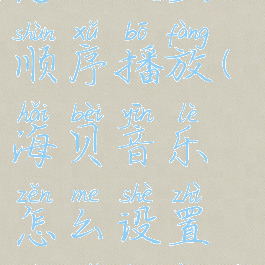 shùn xù bō fàng
顺序播放(
hǎi bèi yīn lè
海贝音乐
zěn me shè zhì
怎么设置